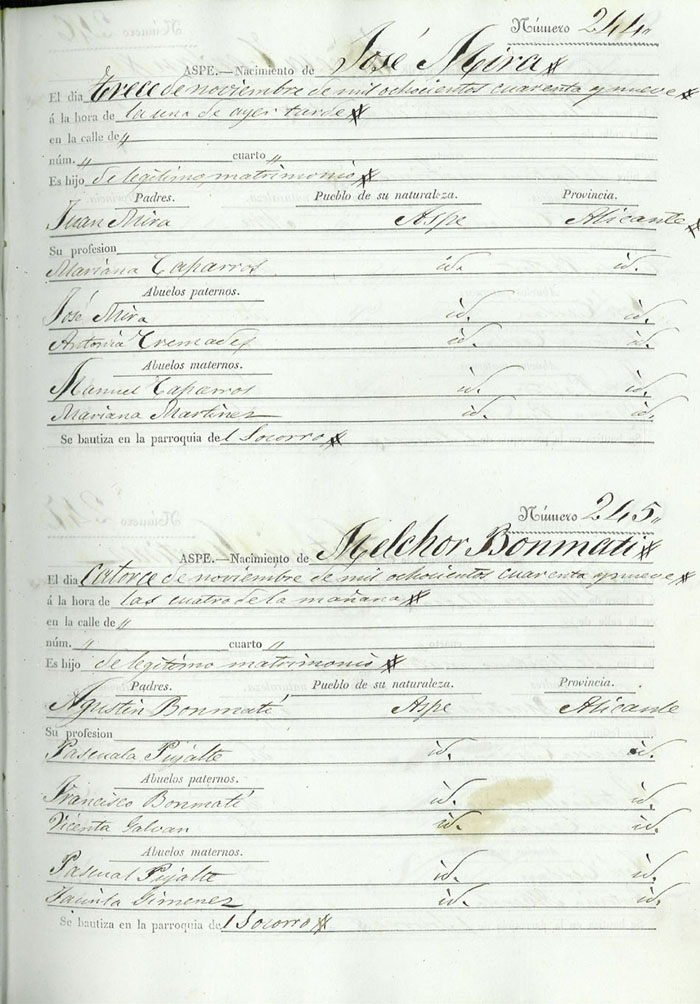 Número 244"
ASPE.—Nacimiento de José Mira
El dia Trece de noviembre de mil ochocientos cuarenta y nueve
á la hora de la una de ayer tarde
en la calle de "
núm. " cuarto "
Es hijo de legitimo matrimonio
Padres. Pueblo de su naturaleza. Provincia.
Juan Mira Aspe Alicante
Su profesion
Mariana Caparros id. id.
Abuelos paternos.
José Mira id. id.
Antonia Cremades id. id.
Abuelos maternos.
Manuel Caparros id. id.
Mariana Martinez id. id.
Se bautiza en la parroquia del Socorro
Número 245"
ASPE.—Nacimiento de Melchor Bonmatí
El dia Catorce de noviembre de mil ochocientos cuarenta y nueve
á la hora de las cuatro de la mañana
en la calle de "
núm. " cuarto "
Es hijo de legitimo matrimonio
Padres. Pueblo de su naturaleza. Provincia.
Agustin Bonmatí Aspe Alicante
Su profesion
Pascuala Pujalte id. id.
Abuelos paternos.
Francisco Bonmatí id. id.
Vicenta Galvan id. id.
Abuelos maternos.
Pascual Pujalte id. id.
Gimenez id. id.
Se bautiza en la parroquia del Socorro